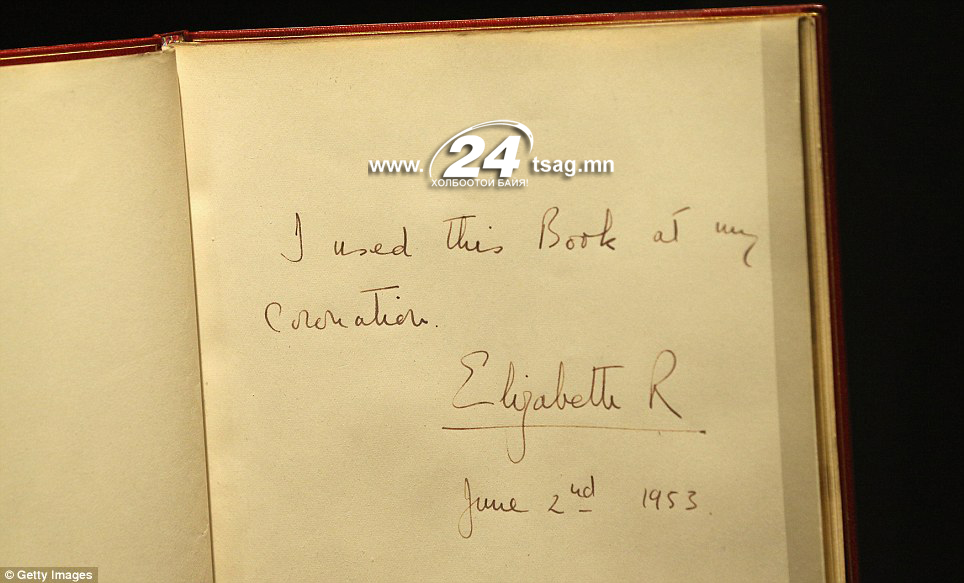 www.24tsag.mn
ХОЛБООТОЙ БАЙЯ!
I used this Book at my
Coronation.
Elizabeth R
June 2nd 1953.
© Getty Images